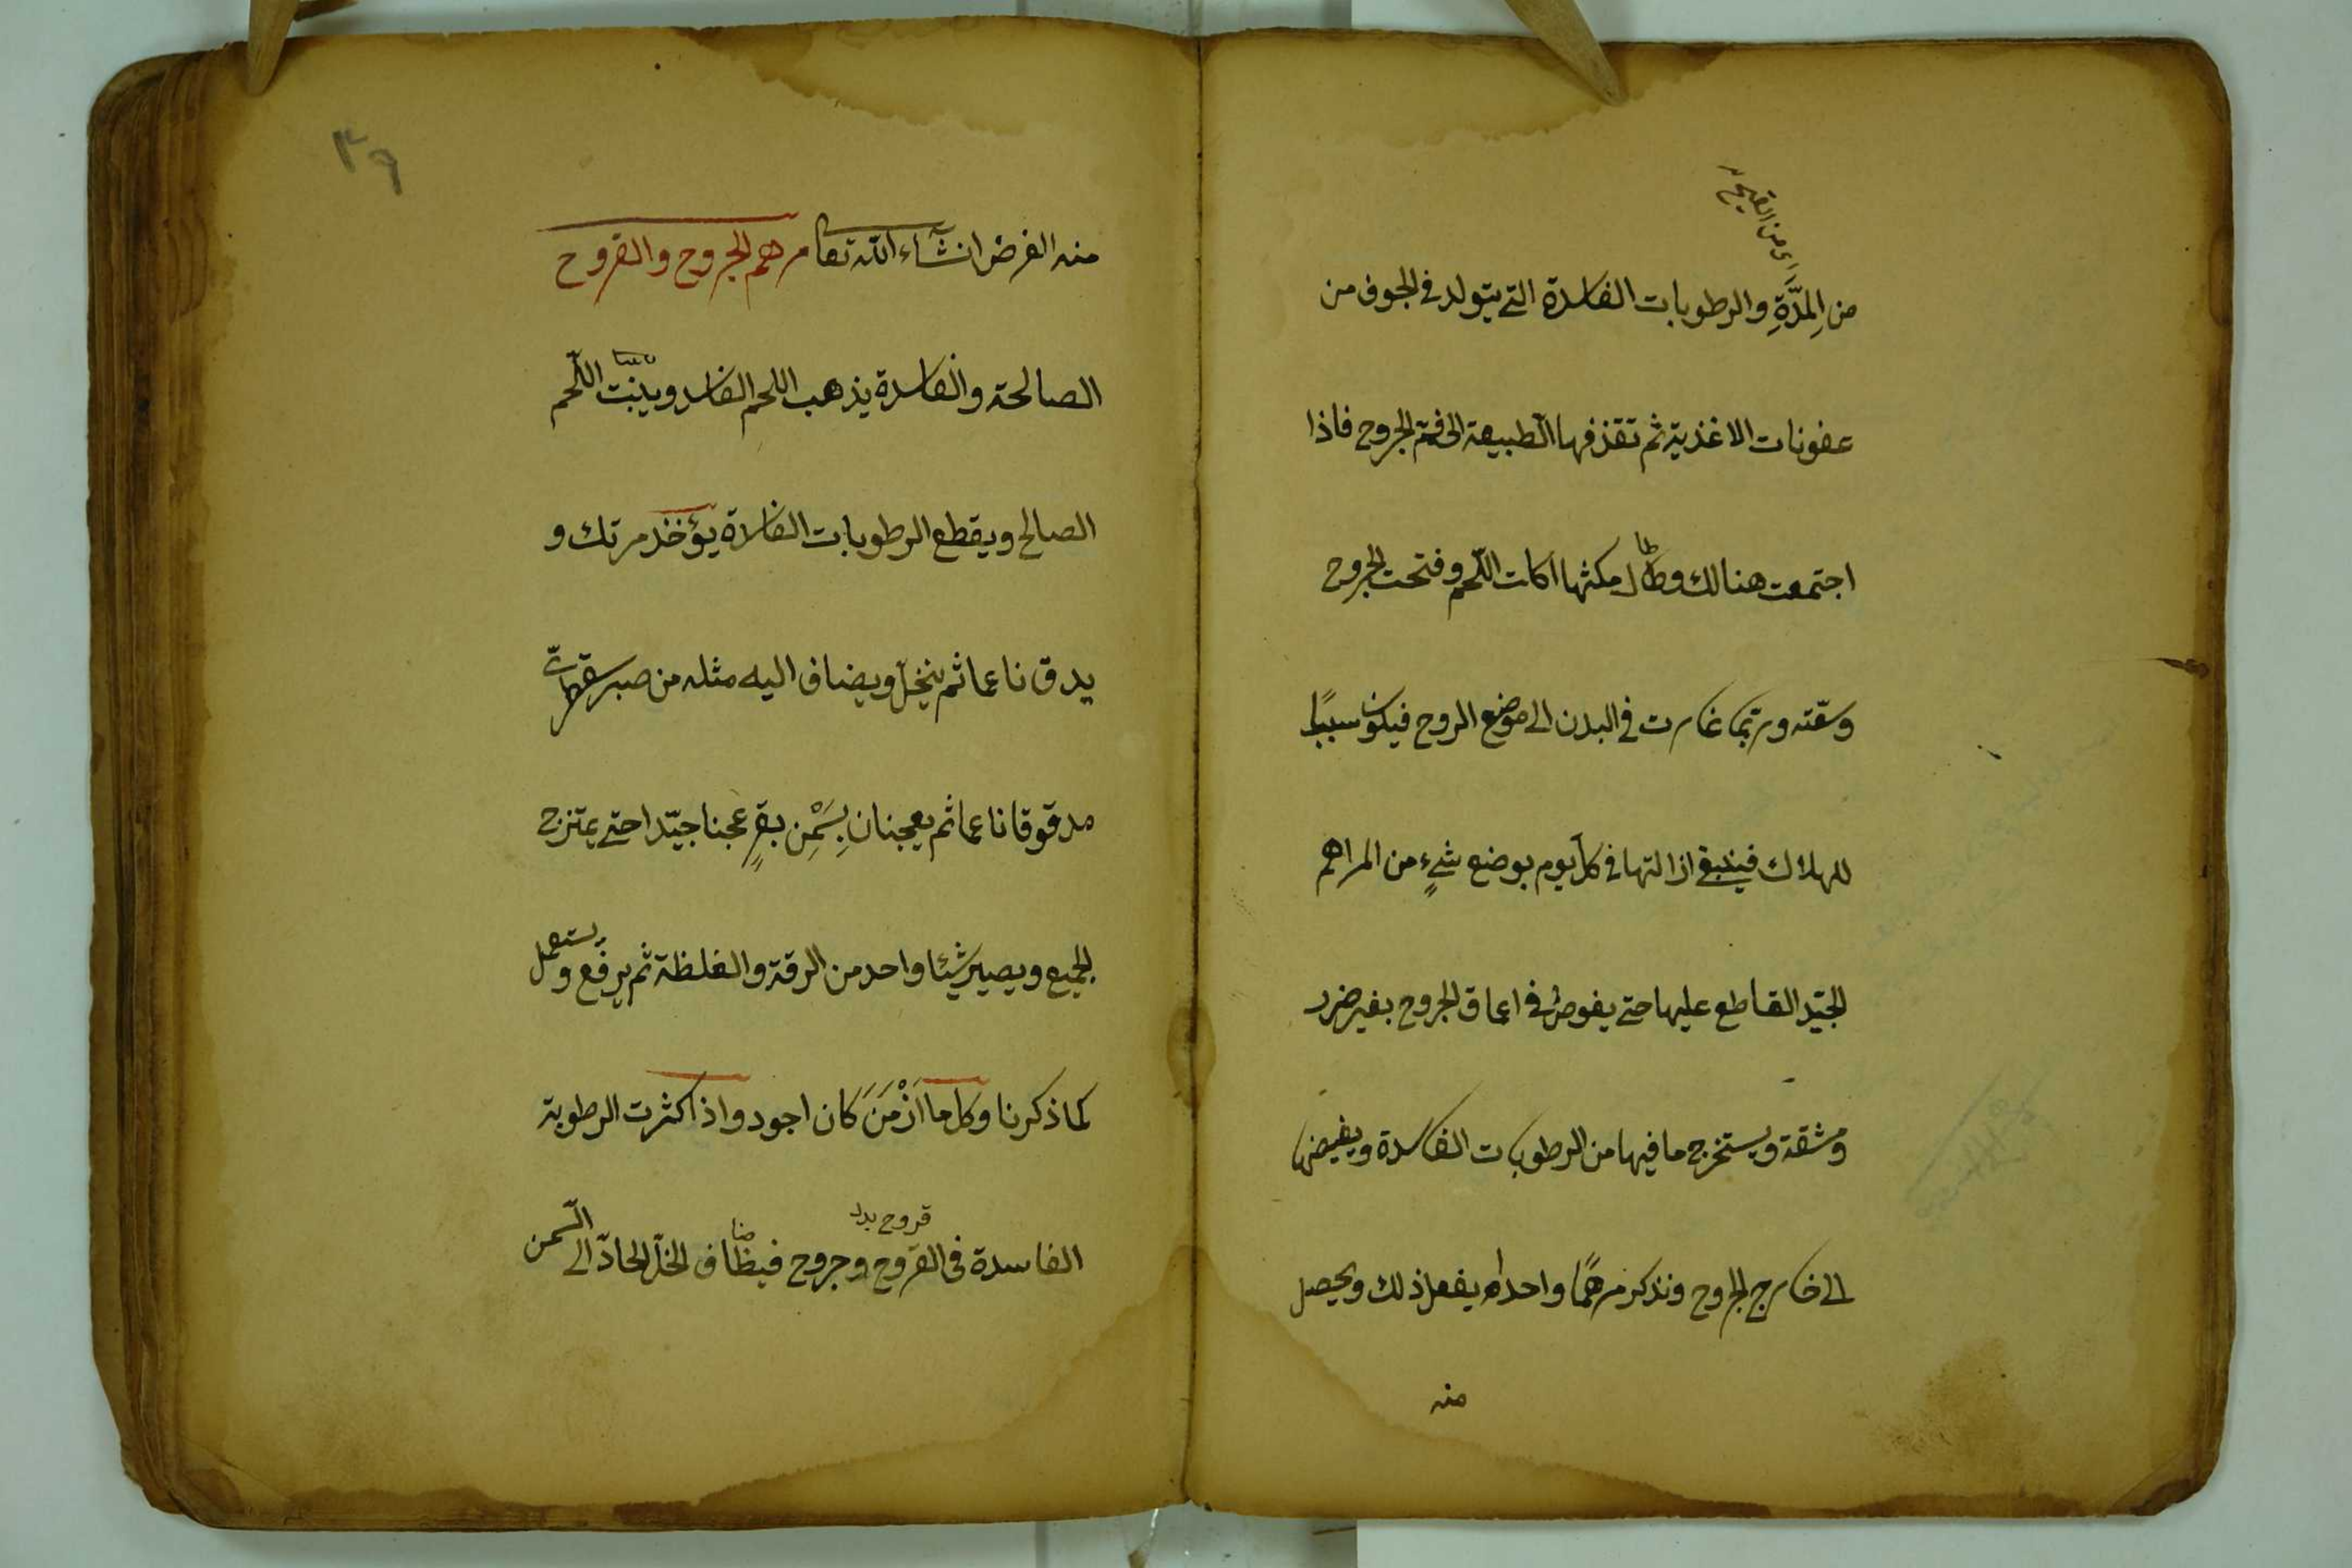 اى من القيح
من المِدَّةِ والرطوبات الفاسدة التى يتولد فى الجوف من
عفونات الاغذية ثم تقذفها الطبيعة الى فم الجروح فاذا
اجتمعت هنالك وطال مكثها اكلت اللحم وفتحت الجروح
وسعّته وربّما غارت فى البدن الى موضع الروح فيكون سببًا
للهلاك فينبغى ازالتها فى كل يوم بوضع شىءٍ من المراهم
الجيّد القاطع عليها حتى يغوص فى اعماق الجروح بغير ضرر
ومشقة ويستخرج ما فيها من الرطوبات الفاسدة ويفيضها
الى خارج الجروح ونذكر مرهمًا واحدا يفعل ذلك ويحصل
منه
٣٦
منه الغرض انشآء الله تعا مرهم الجروح والقروح
الصالحة والفاسدة يذهب اللحم الفاسد وينبت اللحم
الصالح ويقطع الرطوبات الفاسدة يؤخذ مرتك و
يدق ناعما ثم ينخل ويضاف اليه مثله من صبر سقطرىّ
مدقوقا ناعما ثم يعجنان بِسَمْنِ بقرٍ عجنا جيّدا حتى يمتزج
الجميع ويصير شيئا واحد من الرقة والغلظة ثم يرفع ويستعمل
كما ذكرنا وكل ما اَزْمَنَ كان اجود واذا كثرت الرطوبة
قروح
الفاسدة فى القروح وجروح فيظاف الخلّ الحادّ الى السّمن